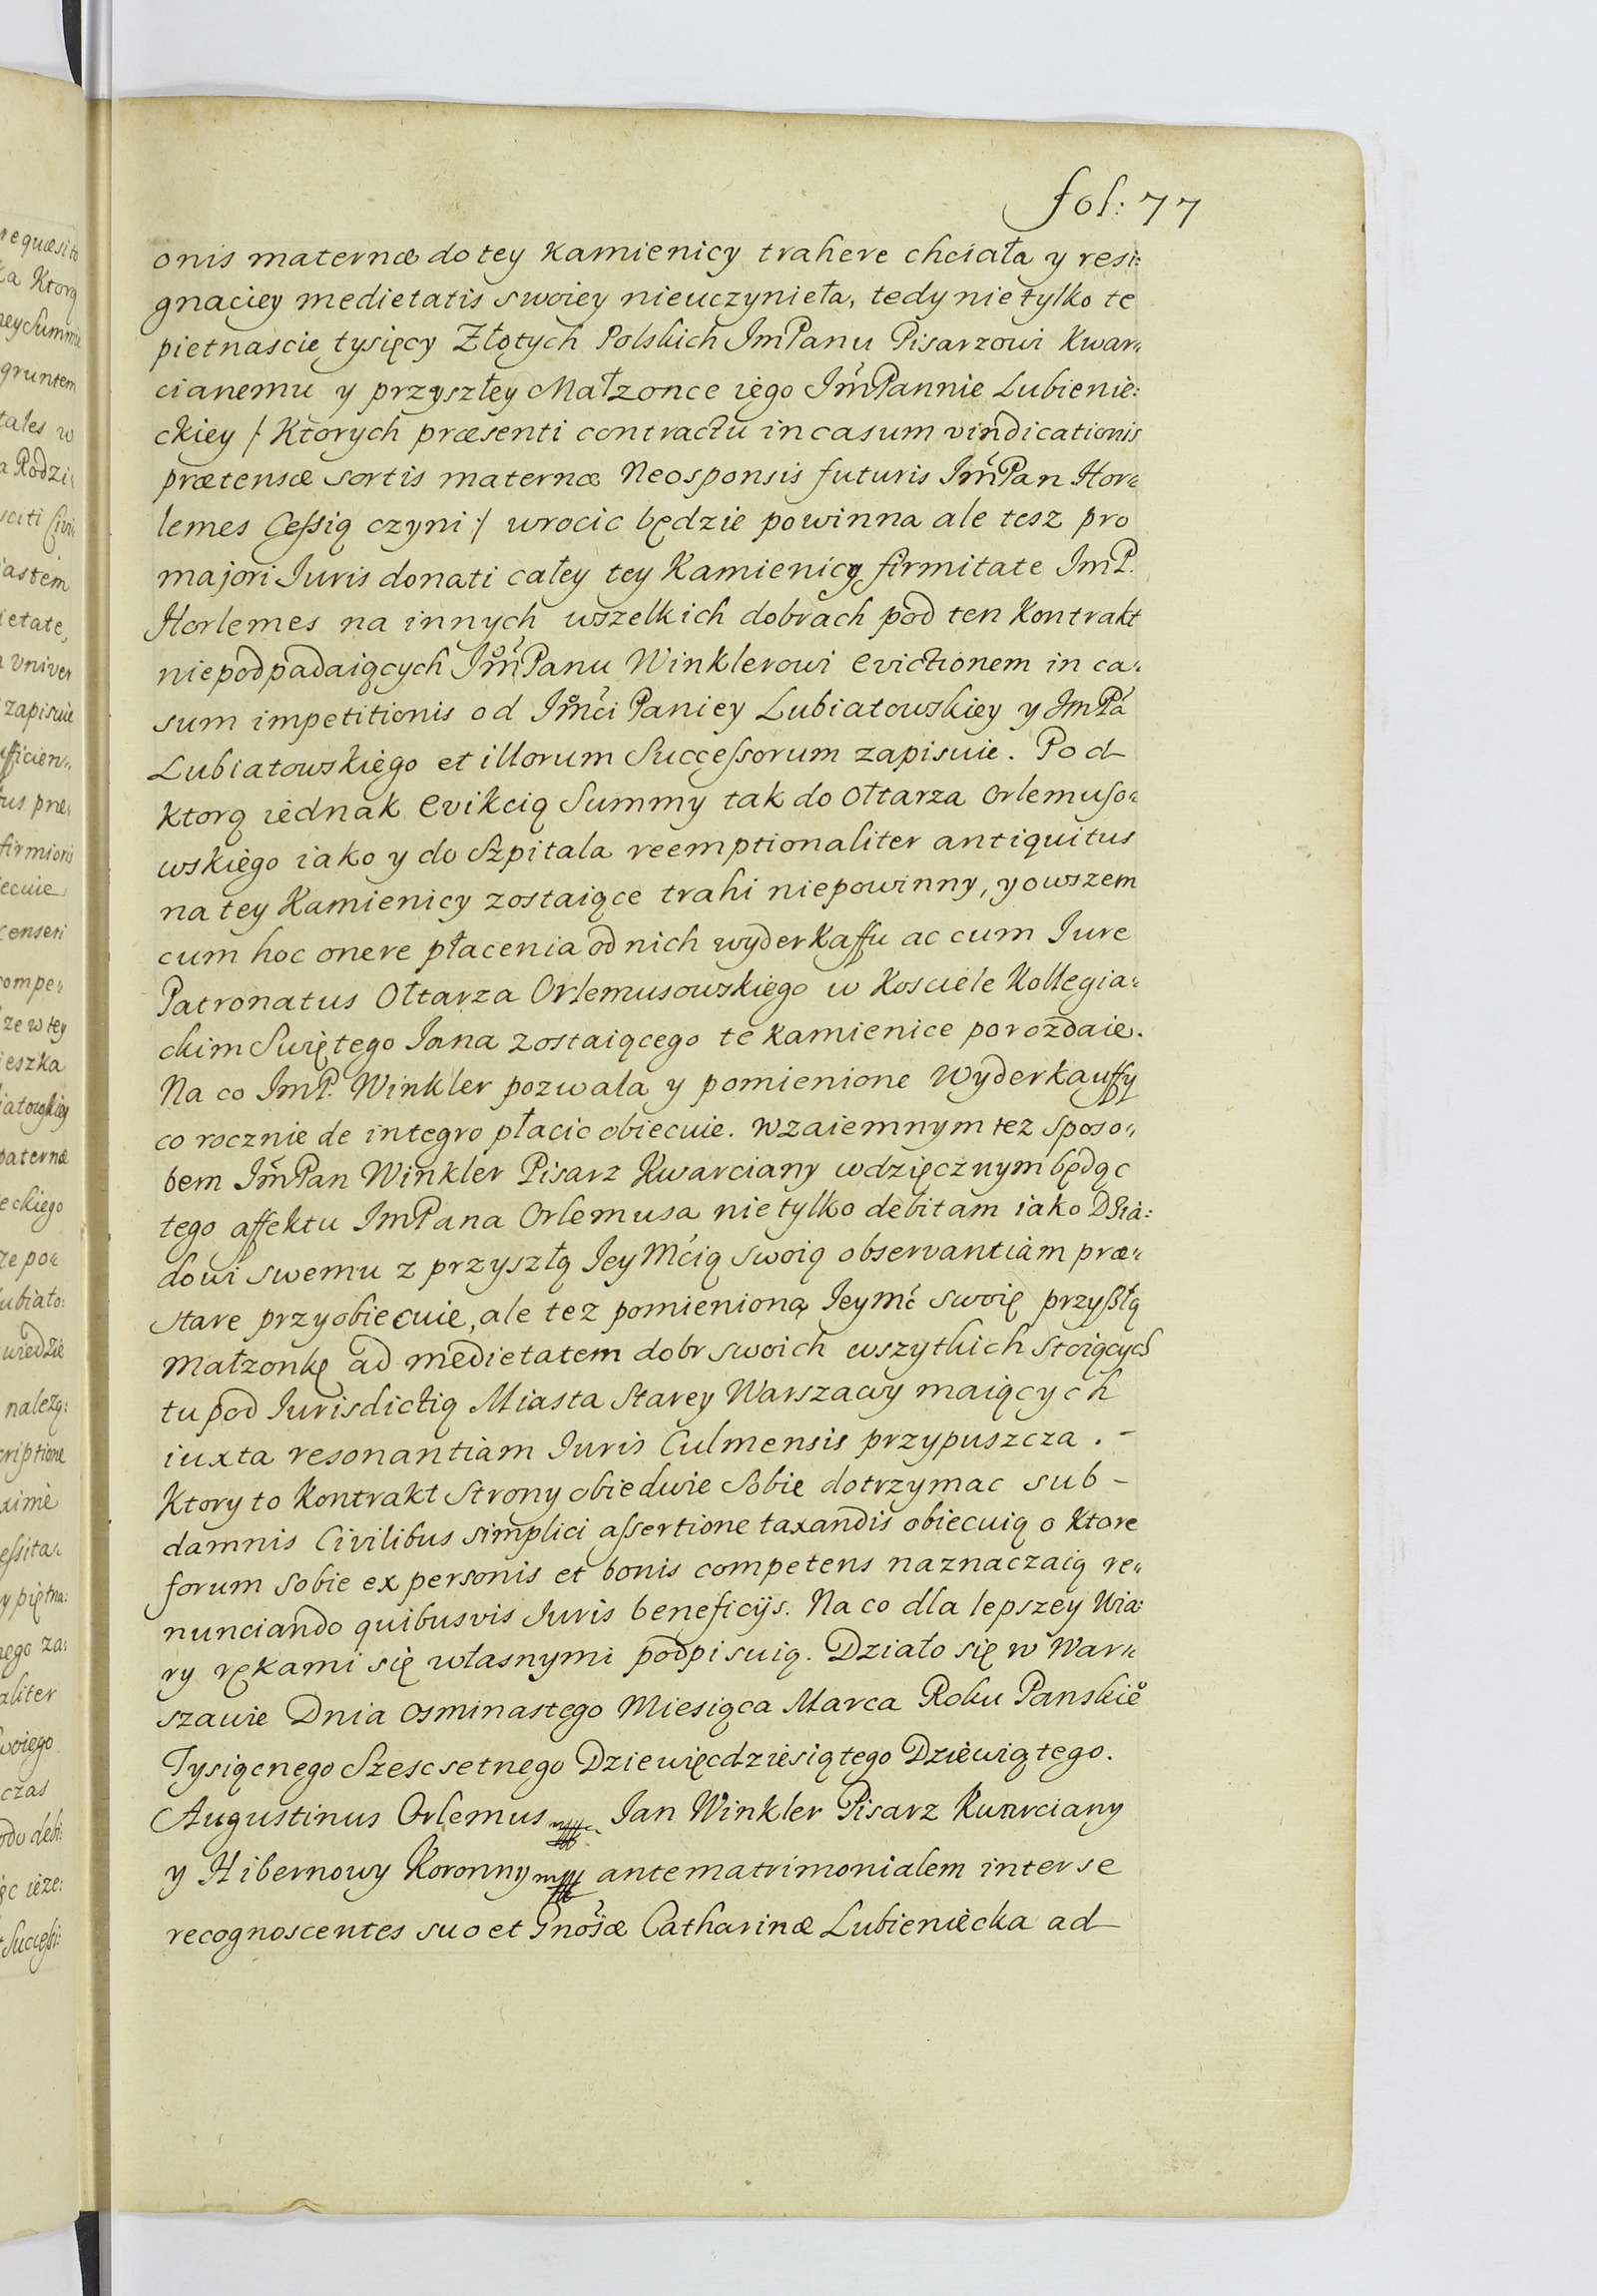 fol: 77
onis maternæ do tey Kamienicy trahere chciała y resi:
gnaciey medietatis swoiey nieuczynieła, tedy nie tylko te
pietnascie tysięcy Złotych Polskich ImPanu Pisarzowi Kwar:
cianemu y przyszłey Małzonce iego ImPannie Lubienie:
ckiey /: Ktorych præsenti contractu in casum vindicationis
prætensæ sortis maternæ Neosponsis futuris ImPan Hor:
lemes Cessią czyni :/ wrocic będzie powinna ale tesz pro
majori Iuris donati całey tey Kamienicy firmitate ImP.
Horlemes na innych wszelkich dobrach pod ten Kontrakt
niepodpadaiących ImPanu Winklerowi evictionem in ca:
sum impetitionis od Imci Paniey Lubiatowskiey y ImPa
Lubiatowskiego et illorum Successorum zapisuie. Pod
ktorą iednak Evikcią Summy tak do Ołtarza Orlemuso:
wskiego iako y do Szpitala reemptionaliter antiquitus
na tey Kamienicy zostaiące trahi niepowinny, y owszem
cum hoc onere płacenia od nich wyderKaffu ac cum Iure
Patronatus Ołtarza Orlemusowskiego w Kosciele Kollegia:
ckim Swiętego Iana zostaiącego te kamienice porozdaie.
Na co ImP. Winkler pozwala y pomienione Wyderkauffy
co rocznie de integro płacic obiecuie. Wzaiemnym tez sposo:
bem ImPan Winkler Pisarz Kwarciany wdzięcznym będąc
tego affektu ImPana Orlemusa nie tylko debitam iako Dzia:
dowi swemu z przyszłą Iey Mcią swoią observantiam præ:
stare przyobiecuie, ale tez pomienioną Iey Mć swoię przyszłą
małzonkę ad medietatem dobr swoich wszytkich stoiących
tu pod Iurisdictią Miasta Starey Warszawy maiących
iuxta resonantiam Iuris Culmensis przypuszcza. -
Ktory to Kontrakt Strony obiedwie Sobie dotrzymac sub -
damnis Civilibus simplici assertione taxandis obiecuią o Ktore
forum sobie ex personis et bonis competens naznaczaią re:
nunciando quibusvis Iuris beneficijs. Na co dla lepszey Wia:
ry rękami się własnymi podpisuią. Działo się w War:
szawie Dnia osminastego Miesiąca Marca Roku Panskie
Tysiącnego Szescsetnego Dziewięcdziesiątego Dziewiątego.
Augustinus Orlemus mpp Ian Winkler Pisarz Kwarciany
y Hibernowy Koronny mpp antematrimonialem inter se
recognoscentes suo et Gnosæ Catharinæ Lubieniecka ad